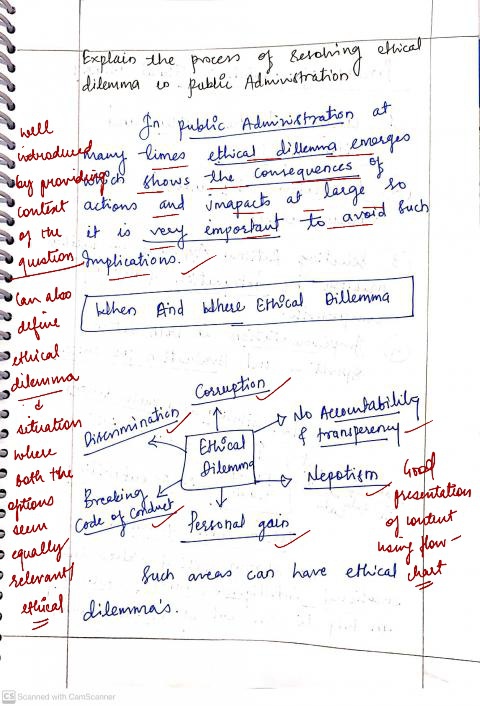 Explain the process of Resolving ethical
dilemma in public Administration
In public Administration at
many times ethical dillema emerges
which shows the consequences of
actions and imapacts at large so
it is very important to avoid such
Implications.
well
introduced
by providing
context
of the
question
Can also
define
ethical
dilemma
↓
situation
where
both the
options
seem
equally
relevant/
ethical
When And Where Ethical Dillemma
Corruption
Discrimination
No Accountability
& transperency
Ethical
Dilemma
Breaking
Code of Conduct
Nepotism
Personal gain
Good
presentation
of content
using flow-
chart
Such areas can have ethical
dilemma's.
CS Scanned with CamScanner